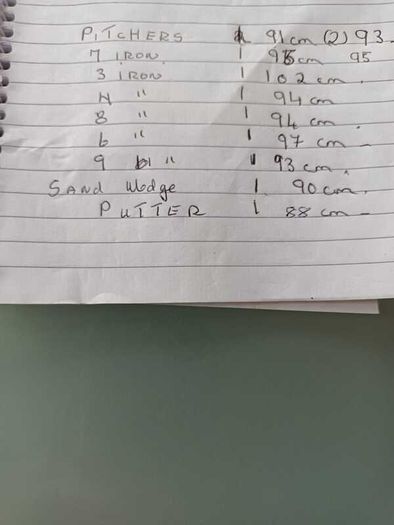 PITCHERS 91cm (2) 93
7 IRON 1 95cm 95
3 IRON 1 102 cm.
" 1 94 cm
8 " 1 94 cm.
6 " 1 97 cm -
9 " 1 93 cm.
SAND Wedge 1 90 cm.
PUTTER 1 88 cm -